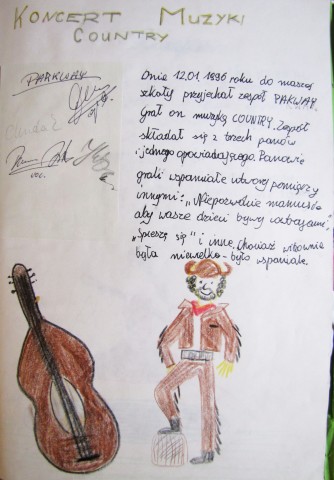 KONCERT MUZYKI
COUNTRY
PARKWAY
Dnia 12.01.1996 roku do naszej
szkoły przyjechał zespół PAKWAY
Grał on muzykę COUNTRY. Zespół
składał się z trzech panów
i jednego opowiadającego. Panowie
grali wspaniałe utwory pomiędzy
innymi: "Niepozwólcie mamusie
aby wasze dzieci były
"Spieszę się" i inne. Chociaż widownia
była niewielka - było wspaniale.